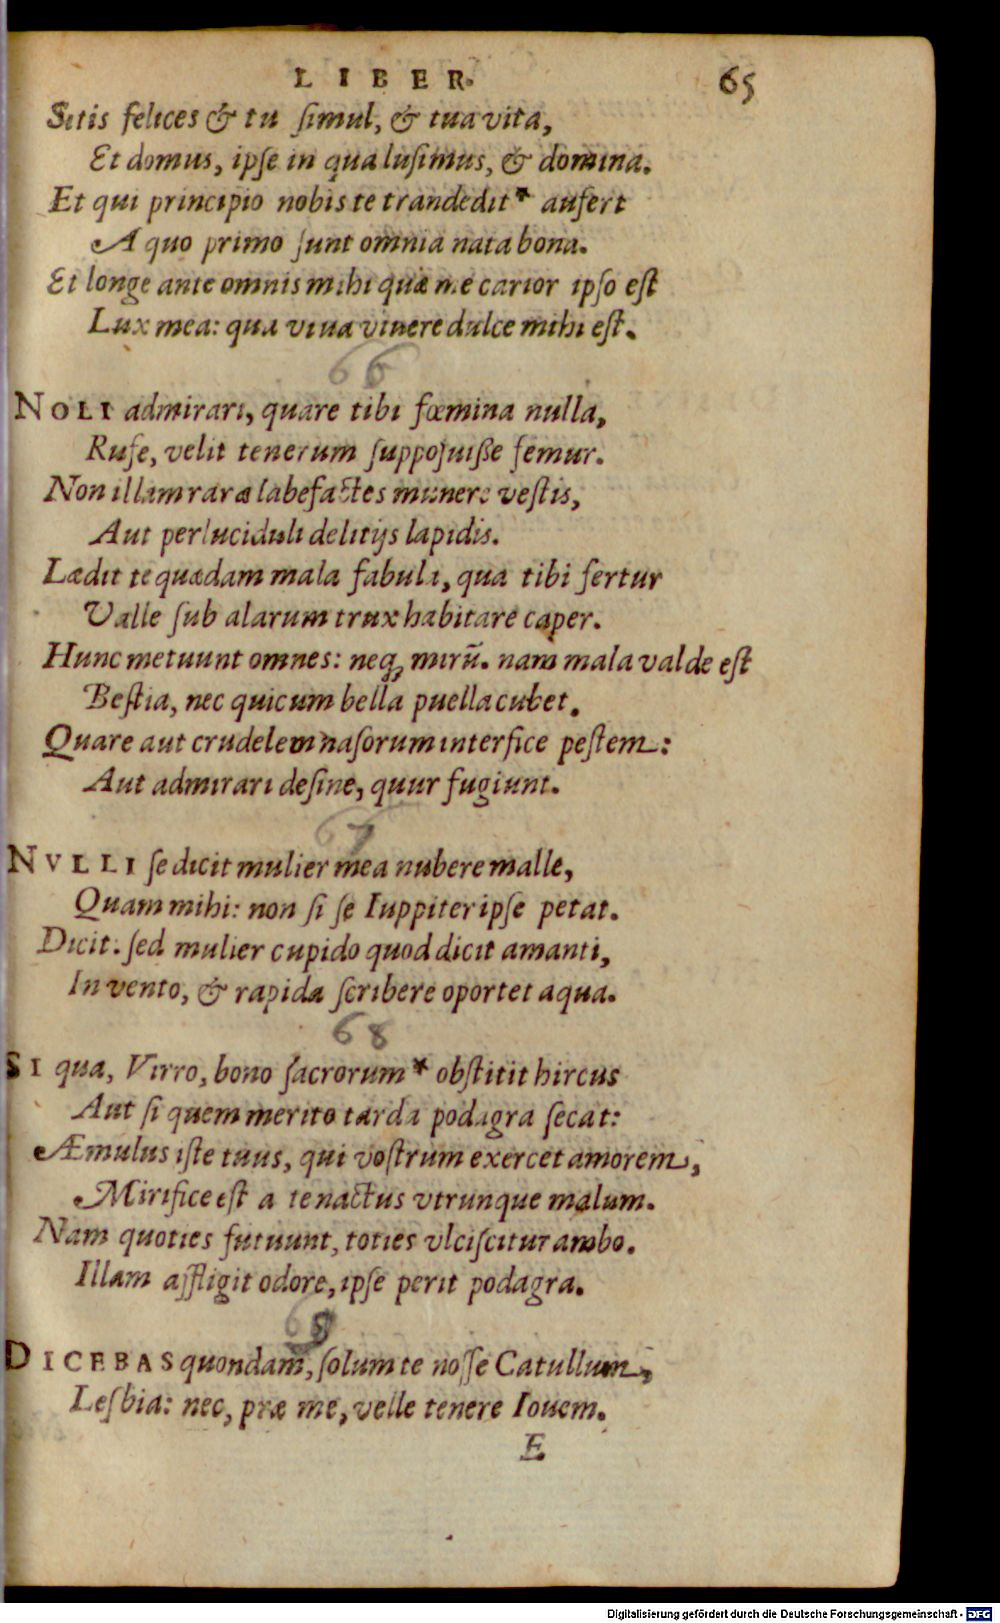 LIBER. 65
Sitis felices & tu simul, & tua vita,
Et domus, ipse in qua lusimus, & domina.
Et qui principio nobis te trandedit* aufert
A quo primo sunt omnia nata bona.
Et longe ante omnis mihi quæ me carior ipso est
Lux mea: qua viua viuere dulce mihi est.
66
NOLI admirari, quare tibi fœmina nulla,
Rufe, velit tenerum supposuisse femur.
Non illam raræ labefactes munere vestis,
Aut perluciduli delitijs lapidis.
Lædit te quædam mala fabula, qua tibi fertur
Valle sub alarum trux habitare caper.
Hunc metuunt omnes: neq; mirũ. nam mala valde est
Bestia, nec quicum bella puella cubet.
Quare aut crudelem nasorum interfice pestem:
Aut admirari desine, quur fugiunt.
67
NVLLI se dicit mulier mea nubere malle,
Quam mihi: non si se Iuppiter ipse petat.
Dicit. sed mulier cupido quod dicit amanti,
In vento, & rapida scribere oportet aqua.
68
SI qua, Virro, bono sacrorum* obstitit hircus
Aut si quem merito tarda podagra secat:
Æmulus iste tuus, qui vostrum exercet amorem,
Mirifice est a te nactus vtrunque malum.
Nam quoties futuunt, toties vlciscitur ambo.
Illam affligit odore, ipse perit podagra.
DICEBAS quondam, solum te nosse Catullum,
Lesbia: nec, præ me, velle tenere Iouem.
E
Digitalisierung gefördert durch die Deutsche Forschungsgemeinschaft - DFG